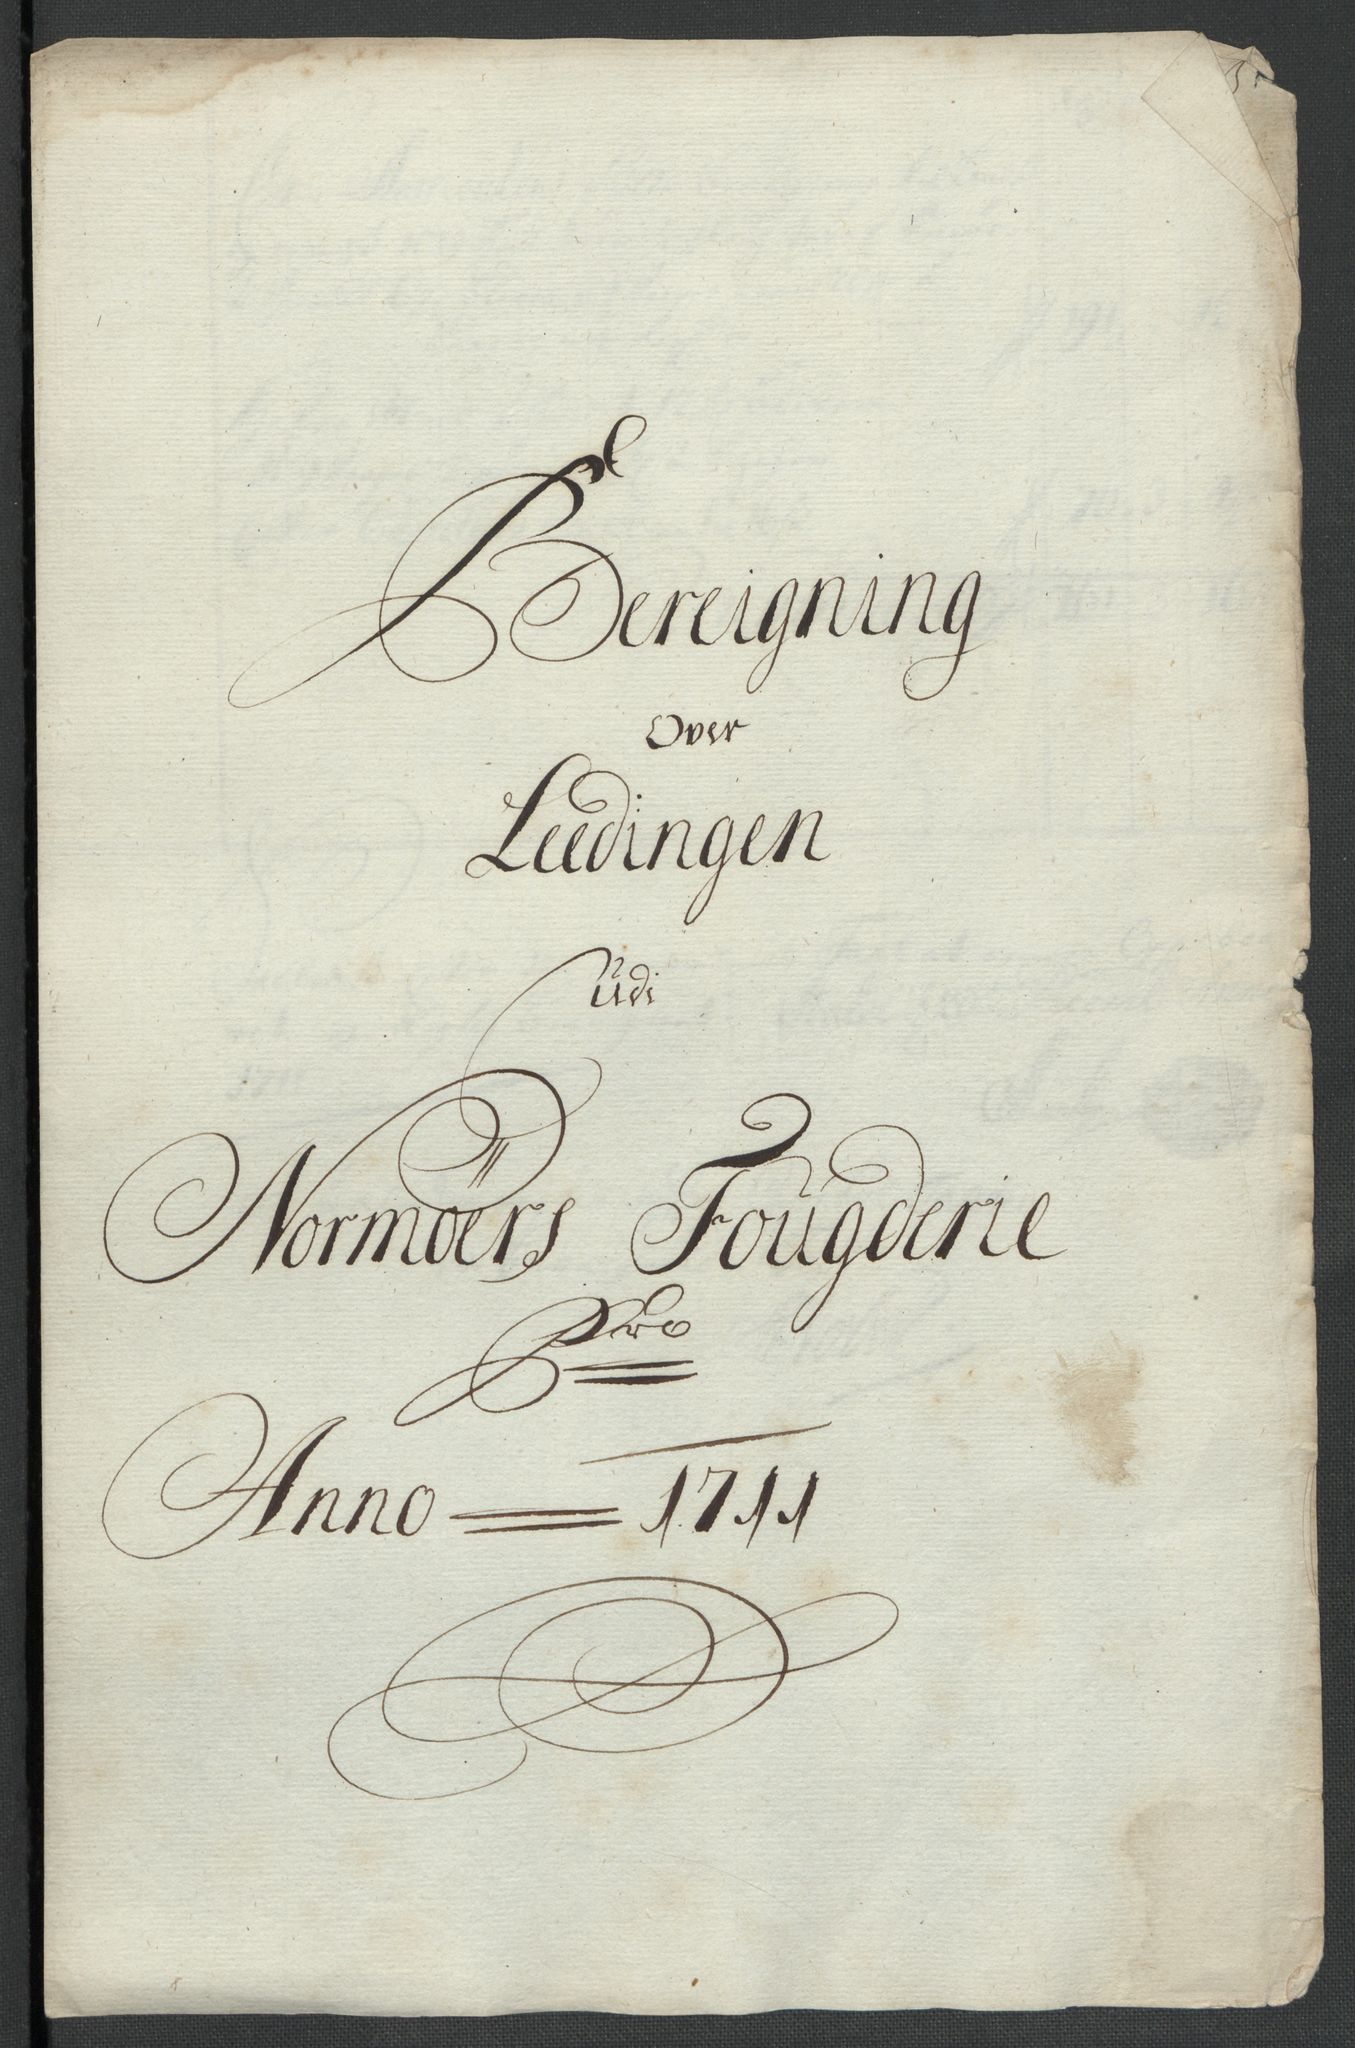 Bereigning
Over
Leedingen
Udi
Normøers Fougderie
Pro
Anno 1711